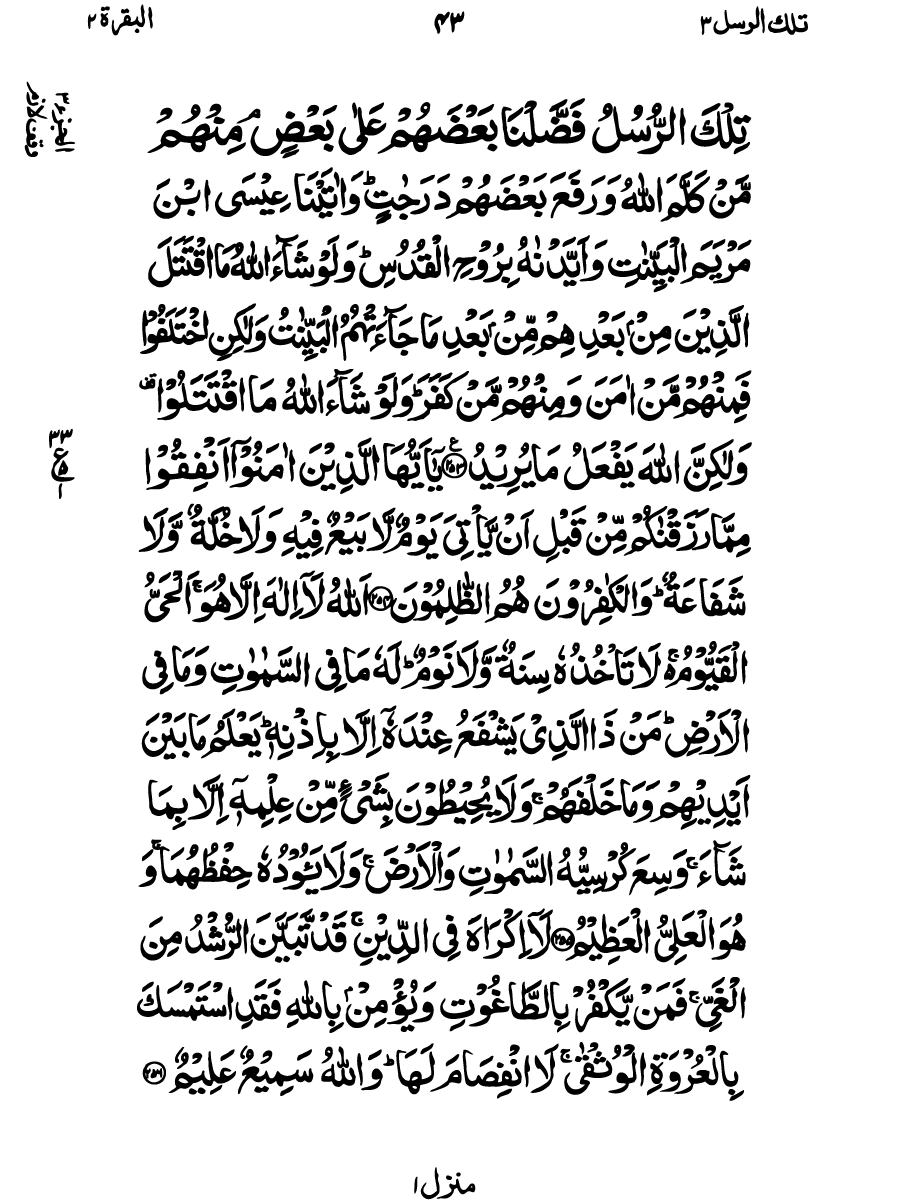 تلك الرسل ٣
٤٣
البقرة ٢
الجزء ٣
وقف لازم
تِلْكَ الرُّسُلُ فَضَّلْنَا بَعْضَهُمْ عَلٰى بَعْضٍ ۘ مِنْهُمْ
مَّنْ كَلَّمَ اللّٰهُ وَرَفَعَ بَعْضَهُمْ دَرَجٰتٍ ؕ وَاٰتَيْنَا عِيْسَى ابْنَ
مَرْيَمَ الْبَيِّنٰتِ وَاَيَّدْنٰهُ بِرُوْحِ الْقُدُسِ ؕ وَلَوْ شَآءَ اللّٰهُ مَا اقْتَتَلَ
الَّذِيْنَ مِنْۢ بَعْدِهِمْ مِّنْۢ بَعْدِ مَا جَآءَتْهُمُ الْبَيِّنٰتُ وَلٰكِنِ اخْتَلَفُوْا
فَمِنْهُمْ مَّنْ اٰمَنَ وَمِنْهُمْ مَّنْ كَفَرَ ؕ وَلَوْ شَآءَ اللّٰهُ مَا اقْتَتَلُوْا ۟
وَلٰكِنَّ اللّٰهَ يَفْعَلُ مَا يُرِيْدُ ﴿۲۵۳﴾ يٰۤاَيُّهَا الَّذِيْنَ اٰمَنُوْۤا اَنْفِقُوْا
٣٣
ع
١
مِمَّا رَزَقْنٰكُمْ مِّنْ قَبْلِ اَنْ يَّاْتِيَ يَوْمٌ لَّا بَيْعٌ فِيْهِ وَلَا خُلَّةٌ وَّلَا
شَفَاعَةٌ ؕ وَالْكٰفِرُوْنَ هُمُ الظّٰلِمُوْنَ ﴿۲۵۴﴾ اَللّٰهُ لَاۤ اِلٰهَ اِلَّا هُوَ ۚ اَلْحَيُّ
الْقَيُّوْمُ ۚ۬ لَا تَاْخُذُهٗ سِنَةٌ وَّلَا نَوْمٌ ؕ لَهٗ مَا فِي السَّمٰوٰتِ وَمَا فِي
الْاَرْضِ ؕ مَنْ ذَا الَّذِيْ يَشْفَعُ عِنْدَهٗۤ اِلَّا بِاِذْنِهٖ ؕ يَعْلَمُ مَا بَيْنَ
اَيْدِيْهِمْ وَمَا خَلْفَهُمْ ۚ وَلَا يُحِيْطُوْنَ بِشَيْءٍ مِّنْ عِلْمِهٖۤ اِلَّا بِمَا
شَآءَ ۚ وَسِعَ كُرْسِيُّهُ السَّمٰوٰتِ وَالْاَرْضَ ۚ وَلَا يَـُٔوْدُهٗ حِفْظُهُمَا ۚ وَ
هُوَ الْعَلِيُّ الْعَظِيْمُ ﴿۲۵۵﴾ لَاۤ اِكْرَاهَ فِي الدِّيْنِ ۙ قَدْ تَّبَيَّنَ الرُّشْدُ مِنَ
الْغَيِّ ۚ فَمَنْ يَّكْفُرْ بِالطَّاغُوْتِ وَيُؤْمِنْۢ بِاللّٰهِ فَقَدِ اسْتَمْسَكَ
بِالْعُرْوَةِ الْوُثْقٰى ۚ لَا انْفِصَامَ لَهَا ؕ وَاللّٰهُ سَمِيْعٌ عَلِيْمٌ ﴿۲۵۶﴾
منزل ١